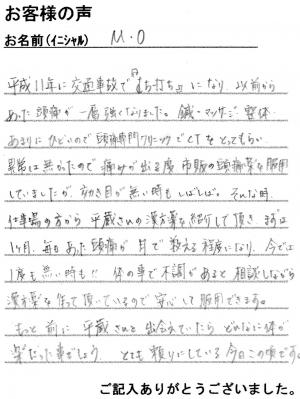 お客様の声
お名前(イニシャル) M.O
平成11年に交通事故で『むち打ち』になり、以前から
あった頭痛が一層強くなりました。鍼・マッサージ・整体
あまりにひどいので頭痛専門クリニックでCTをとってもらい
異常は無かったので痛みが出る度 市販の頭痛薬を服用
していましたが、効き目が無い時もしばしば。そんな時、
仕事場の方から平蔵さんの漢方薬を紹介して頂き、まずは
1ヶ月。毎日あった頭痛が月で数える程度になり、今では
1度も無い時も!! 体の事で不調があると相談しながら
漢方薬を作って頂いているので安心して服用できます。
もっと前に平蔵さんと出会えていたら どんなに体が
楽だった事でしょう。とても頼りにしている今日この頃です。
ご記入ありがとうございました。